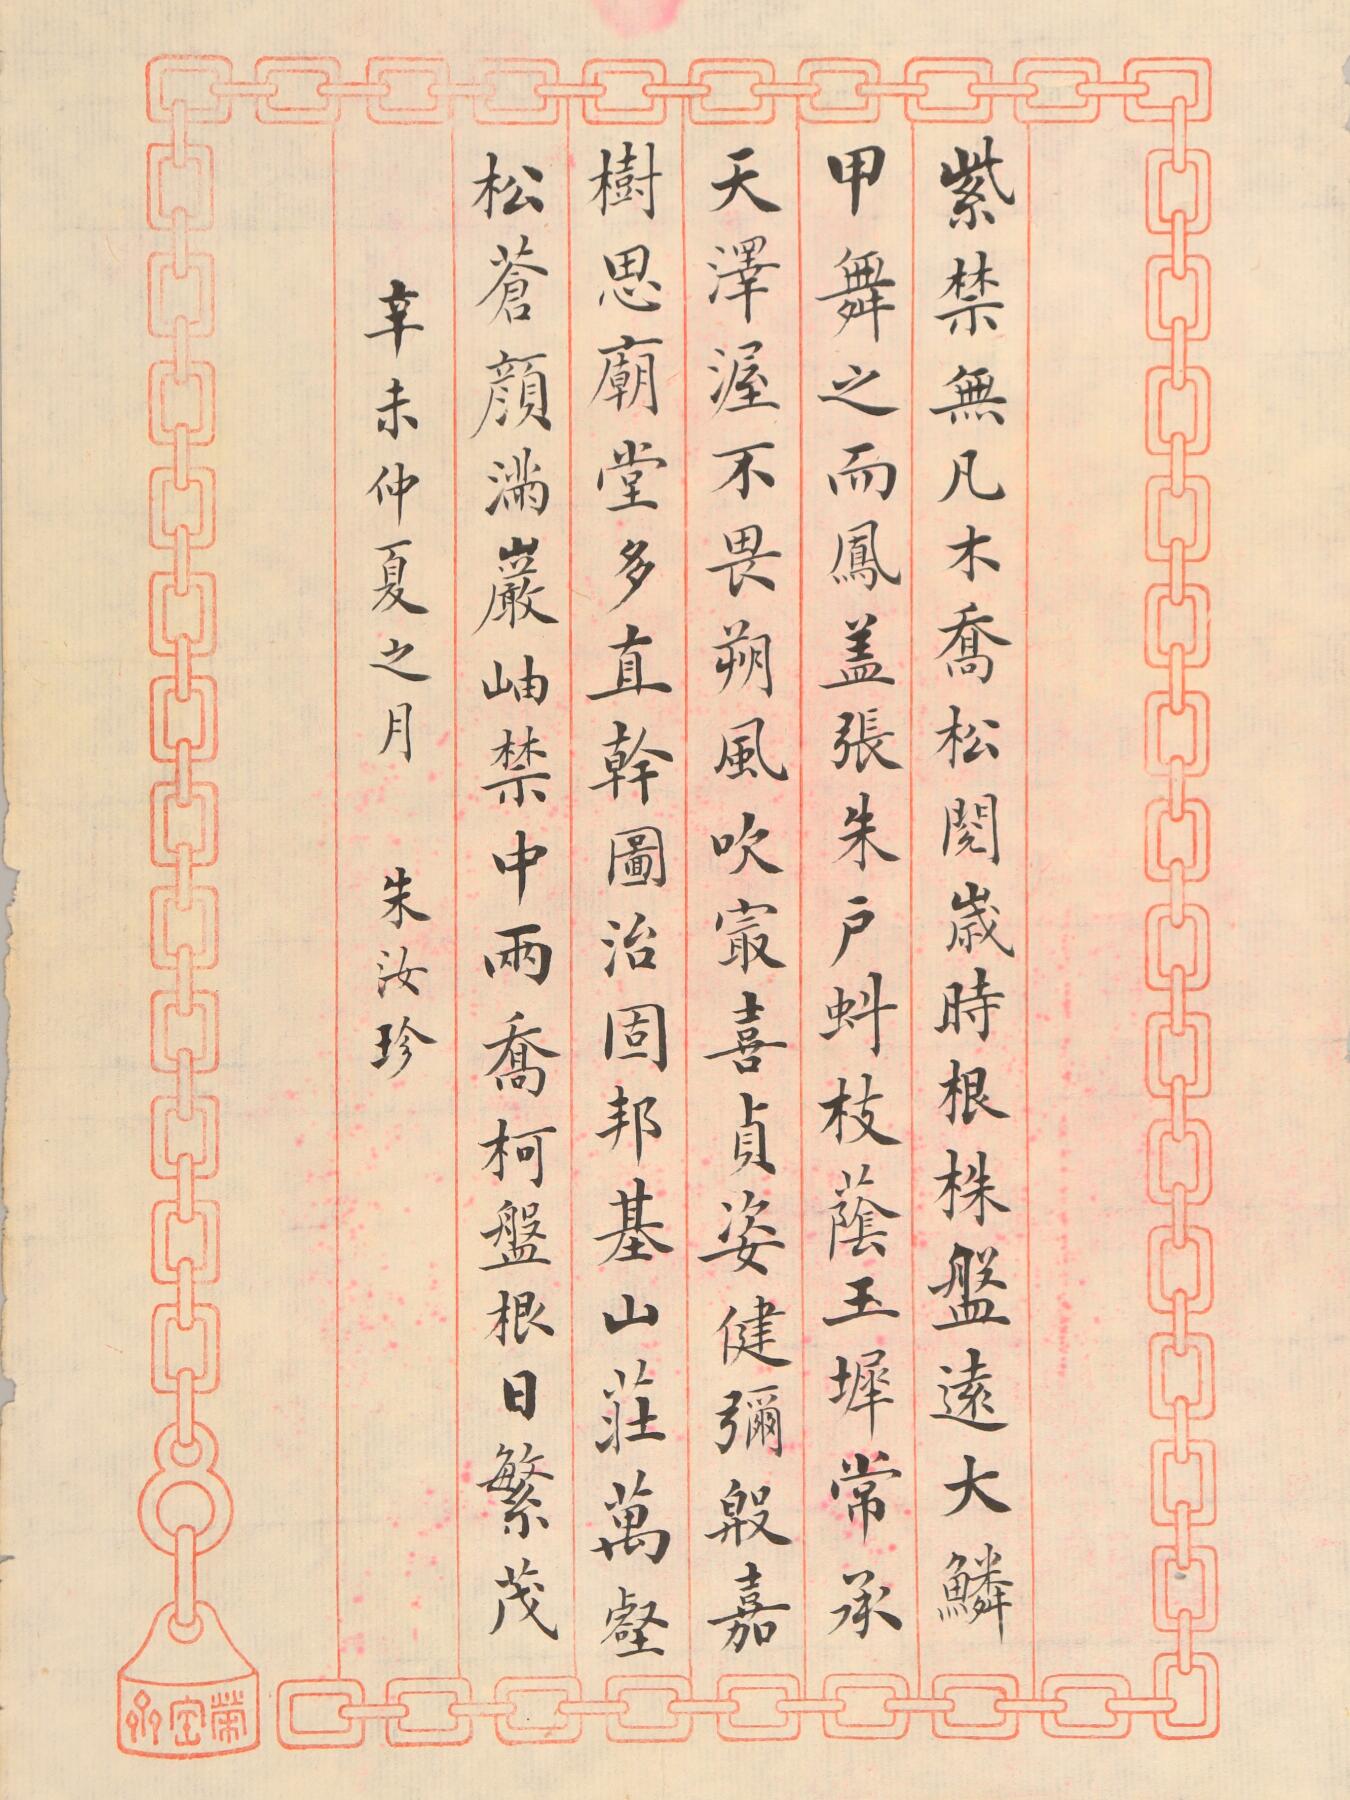 紫禁無凡木喬松閱歳時根株盤遠大鱗
甲舞之而鳳盖張朱戸蚪枝蔭玉墀常承
天澤渥不畏朔風吹寂喜貞姿健彌殷嘉
樹思廟堂多直幹圖治固邦基山莊萬壑
松蒼顔滿巖岫禁中兩喬柯盤根日繁茂
辛未仲夏之月 朱汝珍
榮宝